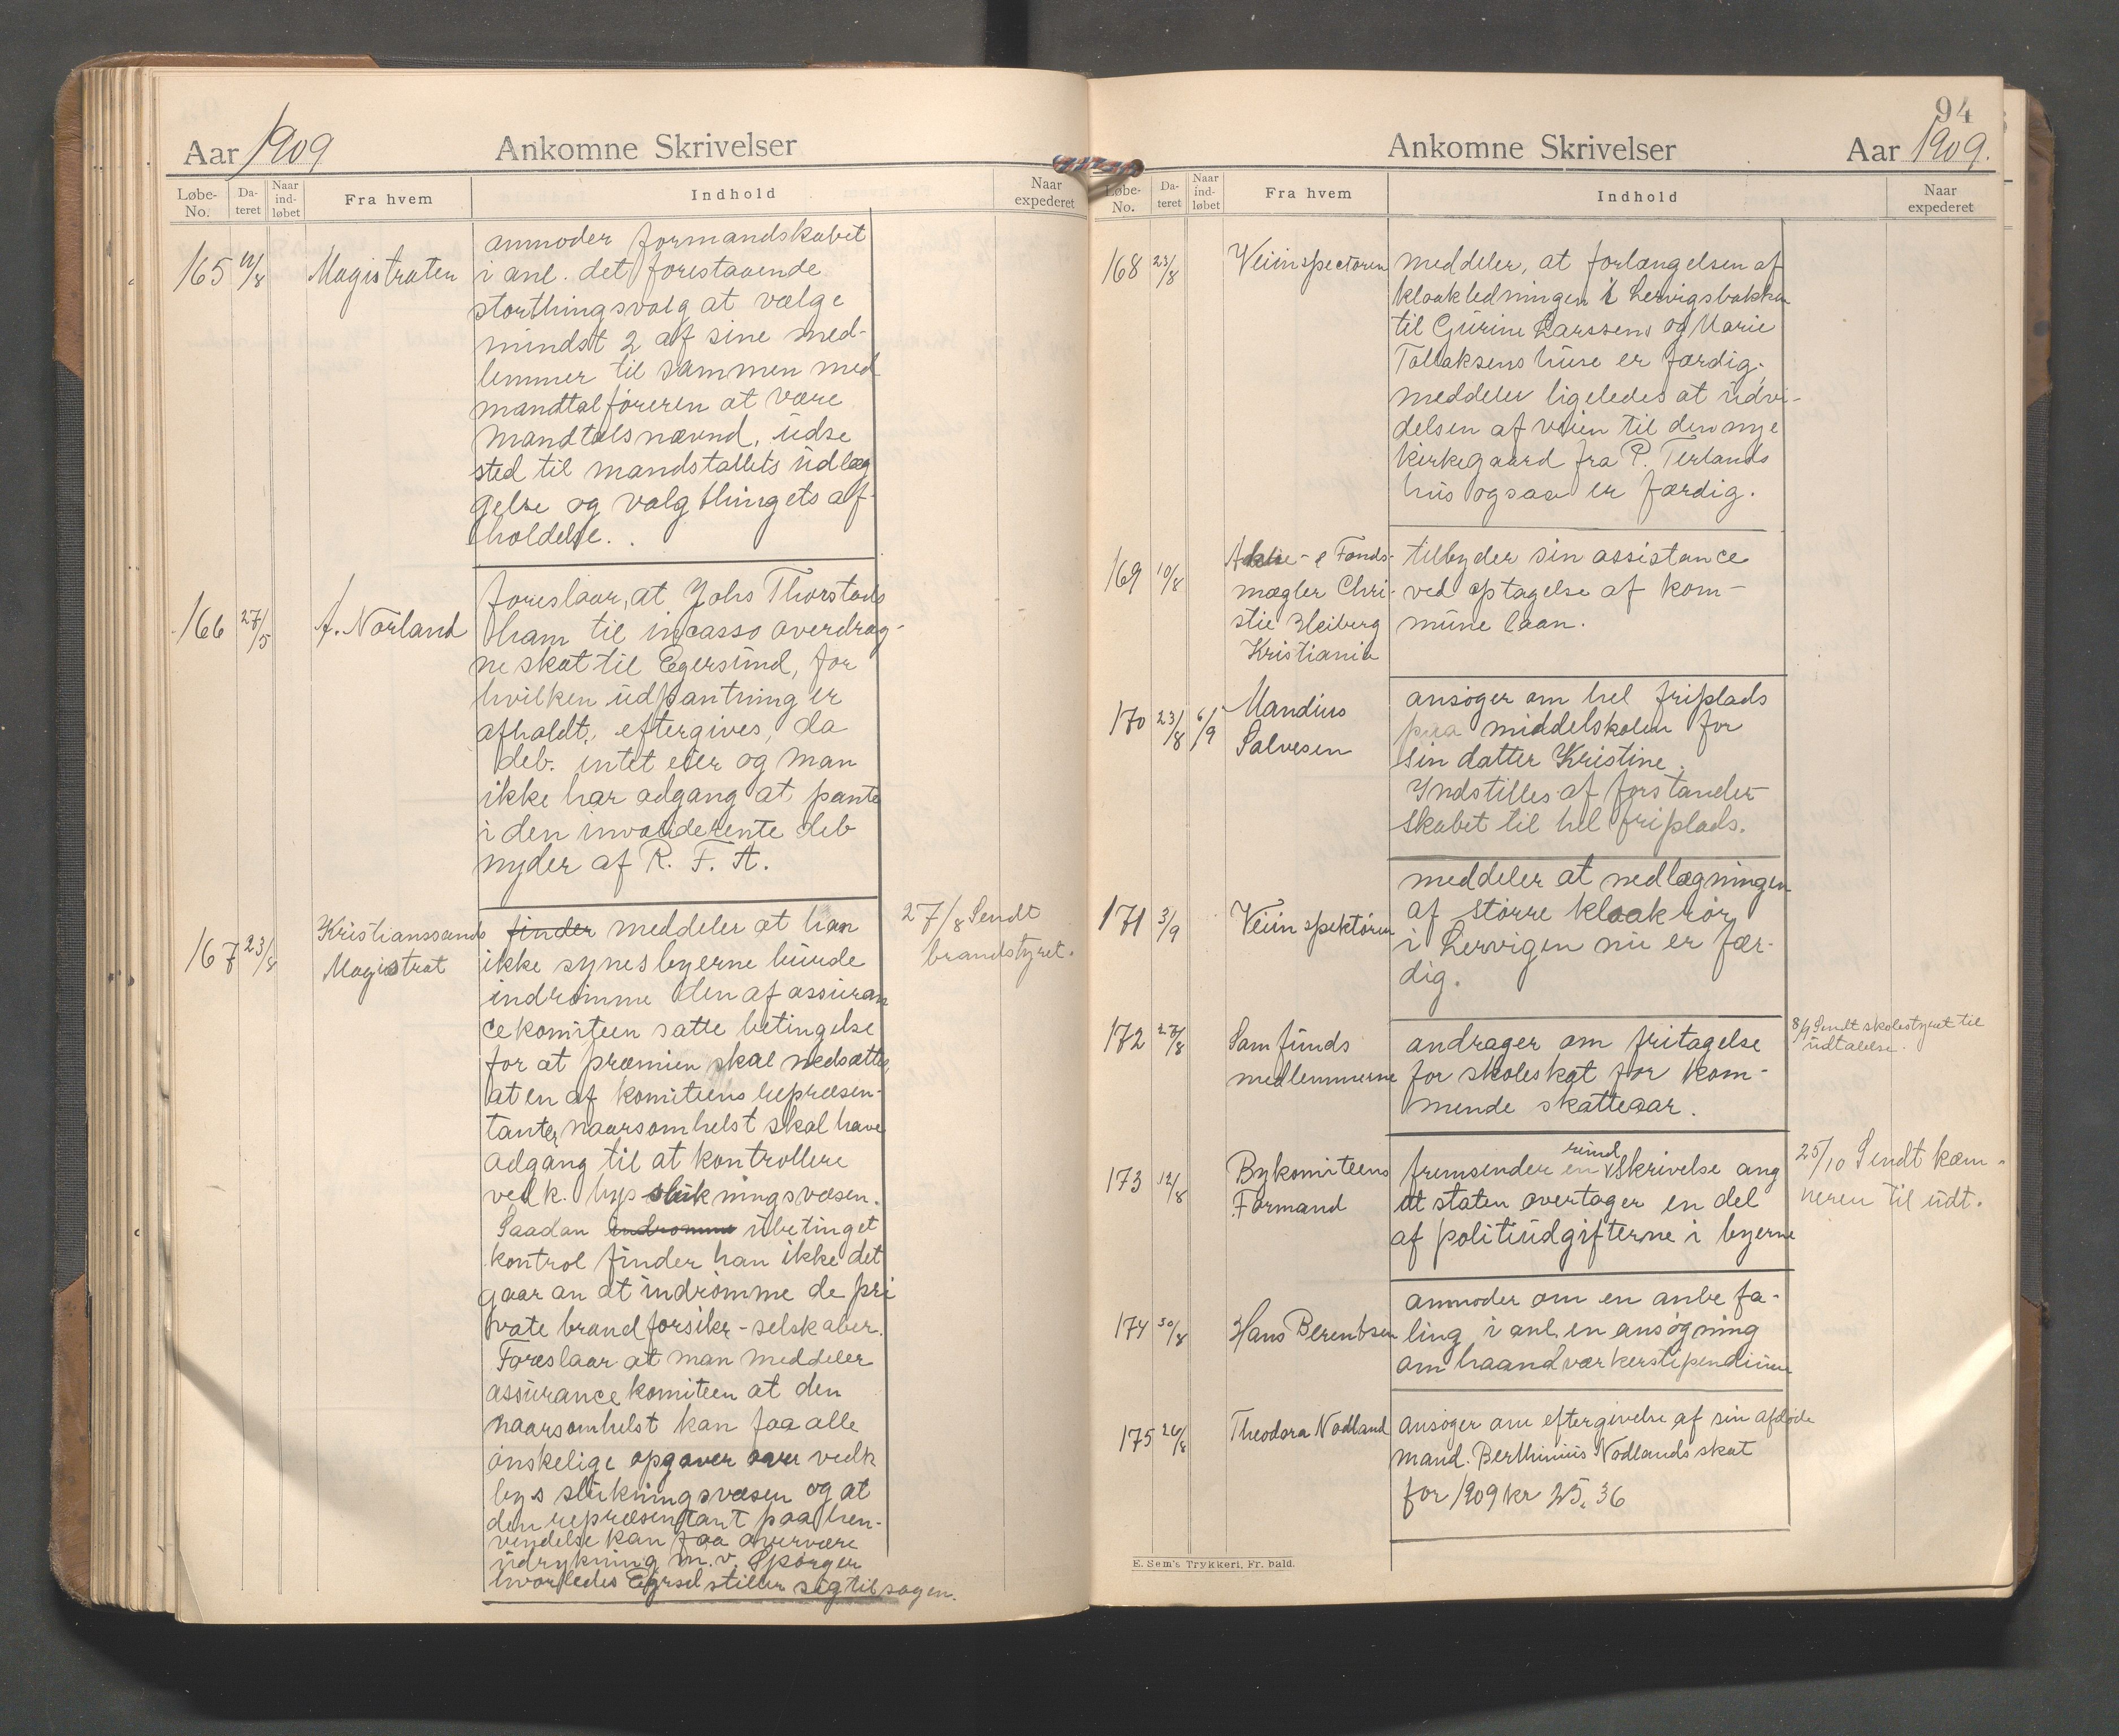 Aar 1909
Ankomne Skrivelser
Løbe-No.
Dateret
Naar indløbet
Fra hvem
Indhold
Naar expederet
165 12/8 Magistraten
anmoder formandskabet
i anl. det forestaaende
storthingsvalg at vælge
mindst 2 af sine med-
lemmer til sammen med
mandtalføreren at være
mandtalsnævnd, udse
sted til mandstallets udlæg
gelse og valgthingets af-
holdelse.
166 27/5 A. Norland
foreslaar, at Johs Thorstads
ham til incasso overdrag-
ne skat til Egersund, for
hvilken udpantning er
afholdt, eftergives, da
deb. intet eier og man
ikke har adgang at pante
i den invaliderente deb
nyder af R. F. A.
167 23/8 Kristianssands
Magistrat
finder meddeler at han
ikke synes byerne burde
indrømme den af assuran
cekomiteen satte betingelse
for at præmien skal nedsættes,
at en af komiteens repræsen-
tanter naarsomhelst skal have
adgang til at kontrollere
vedk. bys slukningsvæsen.
Saadan indrømme ubetinget
kontrol finder han ikke det
gaar an at indrømme de pri
vate brandforsikr-selskaber.
Foreslaar at man meddeler
assurancekomiteen at den
naarsomhelst kan faa alle
ønskelige opgaver over vedk
bys slukningsvæsen og at
den repræsentant paa hen-
vendelse kan faa overvære
udrykning m.v. Spørger
hvorledes Egrsd stiller sig til sagen.
27/8 Sendt
brandstyret.
94
Ankomne Skrivelser
Aar 1909.
Løbe-No.
Dateret
Naar indløbet
Fra hvem
Indhold
Naar expederet
168 23/8 Veiinspectøren
meddeler, at forlængelsen af
kloakledningen i Lervigsbakken
til Gurine Larssens og Marie
Tollaksens huse er færdig;
meddeler ligeledes at udvi-
delsen af veien til den nye
kirkegaard fra P. Terlands
hus ogsaa er færdig.
169 10/8 Aktie- & Fonds-
mægler Chri-
stie Heiberg
Kristiania
tilbyder sin assistance
ved optagelse af kom-
mune laan.
170 23/8 6/9 Mandius
Salvesen
ansøger om hel friplads
paa middelskolen for
sin datter Kristine.
Indstilles af forstander-
skabet til hel friplads.
171 3/9 Veiinspektøren
meddeler at nedlægningen
af større kloakrør
i Lervigen nu er fær-
dig.
172 27/8 Samfunds
medlemmerne
andrager om fritagelse
for skoleskat for kom-
mende skatteaar.
8/9 Sendt skolestyret til
udtalelse.
173 12/8 Bykomiteens
Formand
fremsender en rund skrivelse ang
at staten overtager en del
af politiudgifterne i byerne
25/10 Sendt kæm-
neren til udt.
174 30/8 Hans Berentsen
anmoder om en anbefa-
ling i anl. en ansøgning
om haandværkerstipendium
175 26/8 Theodora Nodland
ansøger om eftergivelse af sin afdøde
mand. Berthinius Nodlands skat
for 1909 kr 25,36
E. Sem's Trykkeri, Fr.hald.